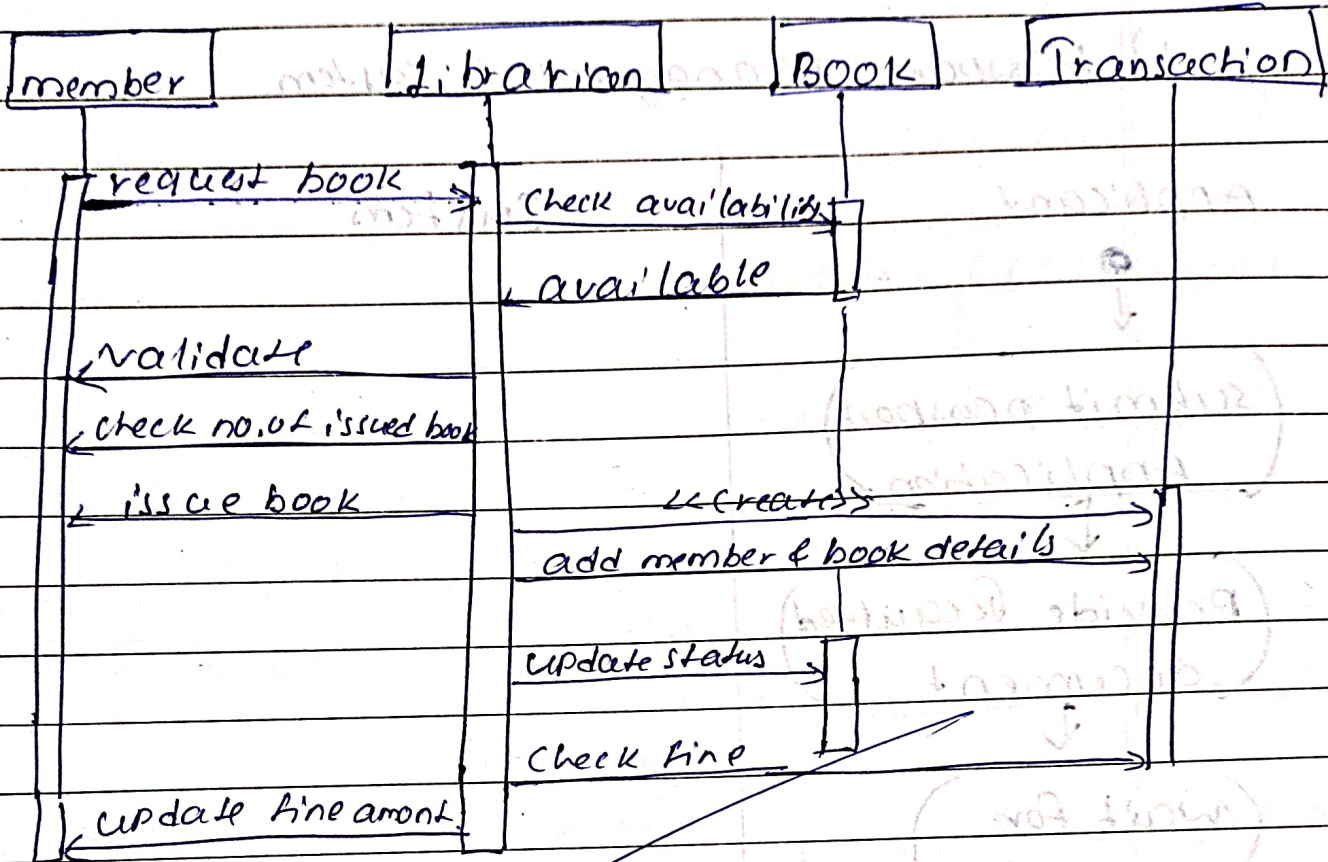 member Librarian BOOK Transaction
request book
Check availability
available
validate
check no. of issued book
issue book
<<create>>
add member & book details
update status
Check fine
update fine amont